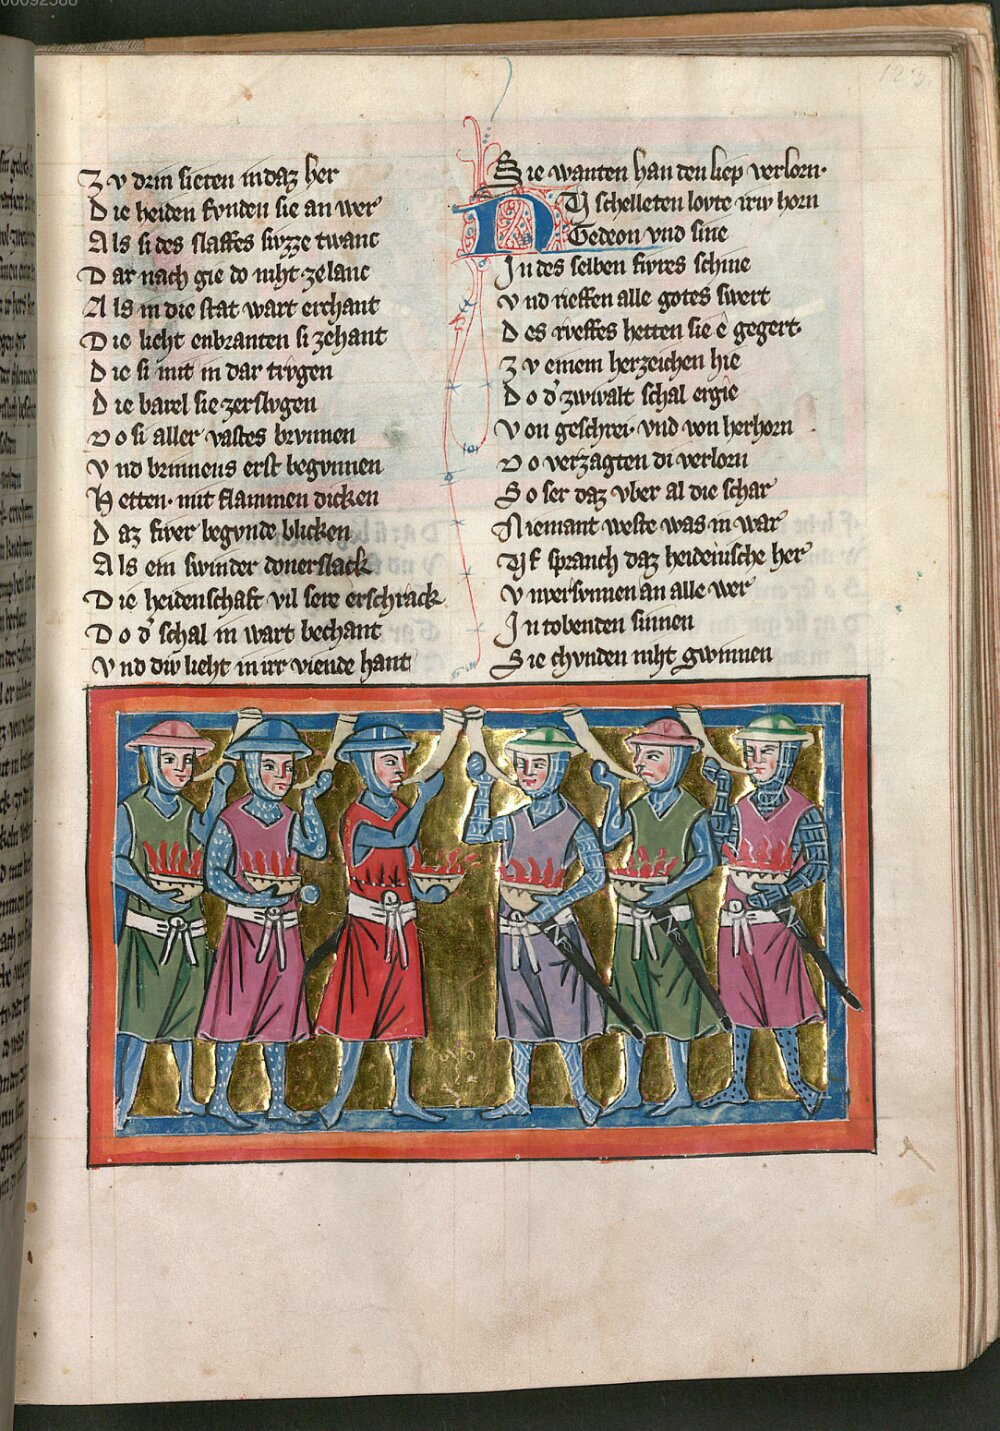 Zv drin sieten in daz her
Die heiden fvnden sie an wer
Als si des slaffes svzze twanc
Dar nach gie do niht ze lanc
Als in die stat wart erchant
Die lieht enbranten si zehant
Die si mit in dar trvgen
Die barel sie zerslvgen
Do si aller vastes brvnnen
Vnd brinnens erst begvnnen
Hetten mit flammen dicken
Daz fiver begvnde blicken
Als ein swinder donerslack
Die heidenschaft vil sere erschrack
Do d' schal in wart bechant
Vnd div lieht in irr viende hant
Sie wanten han den liep verlorn.
NV schelleten lovte iriv horn
Gedeon vnd sine
In des selben fivres schine
Vnd rieffen alle gotes swert
Des rveffes hetten sie e gegert.
Zv einem herzeichen hie
Do d' zwivalt schal ergie
Von geschrei. vnd von herhorn
Do verzagten di verlorn
So ser daz vber al die schar
Niemant weste was in war
Vf spranch daz heidenische her
Vnversvnnen an alle wer
In tobenden sinnen
Sie chvnden niht gwinnen